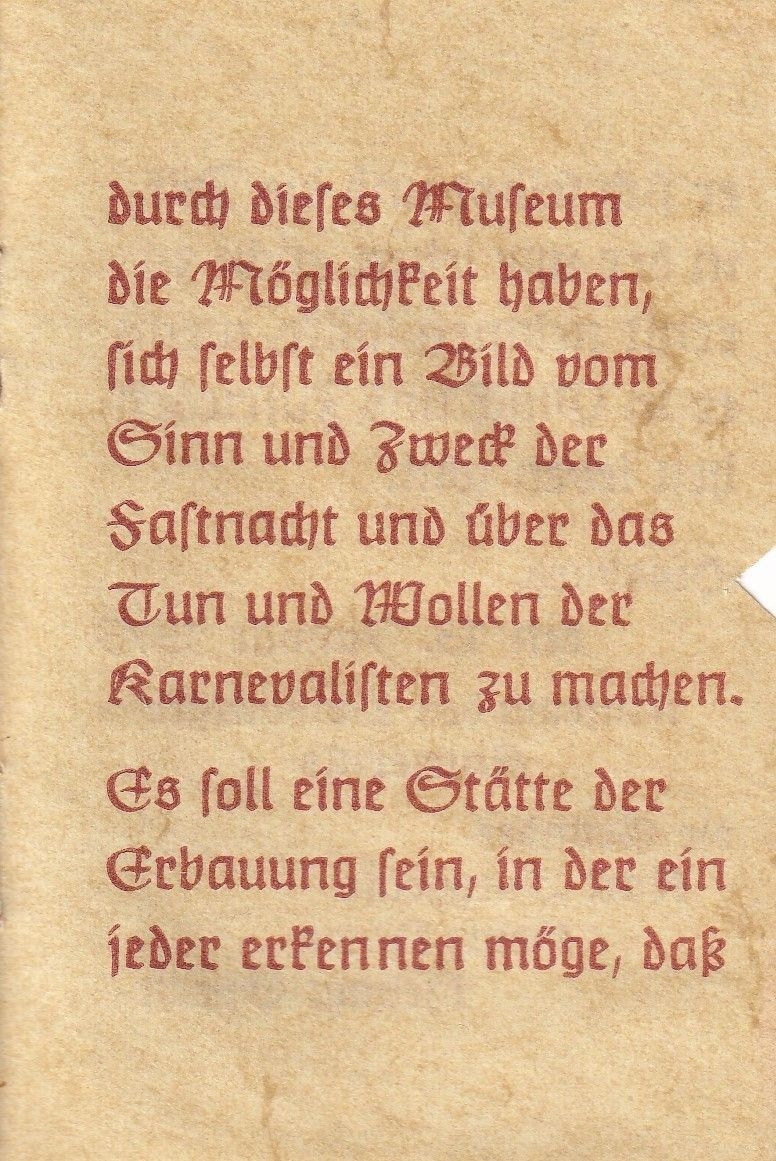 durch dieses Museum
die Möglichkeit haben,
sich selbst ein Bild vom
Sinn und Zweck der
Fastnacht und über das
Tun und Wollen der
Karnevalisten zu machen.
Es soll eine Stätte der
Erbauung sein, in der ein
jeder erkennen möge, daß